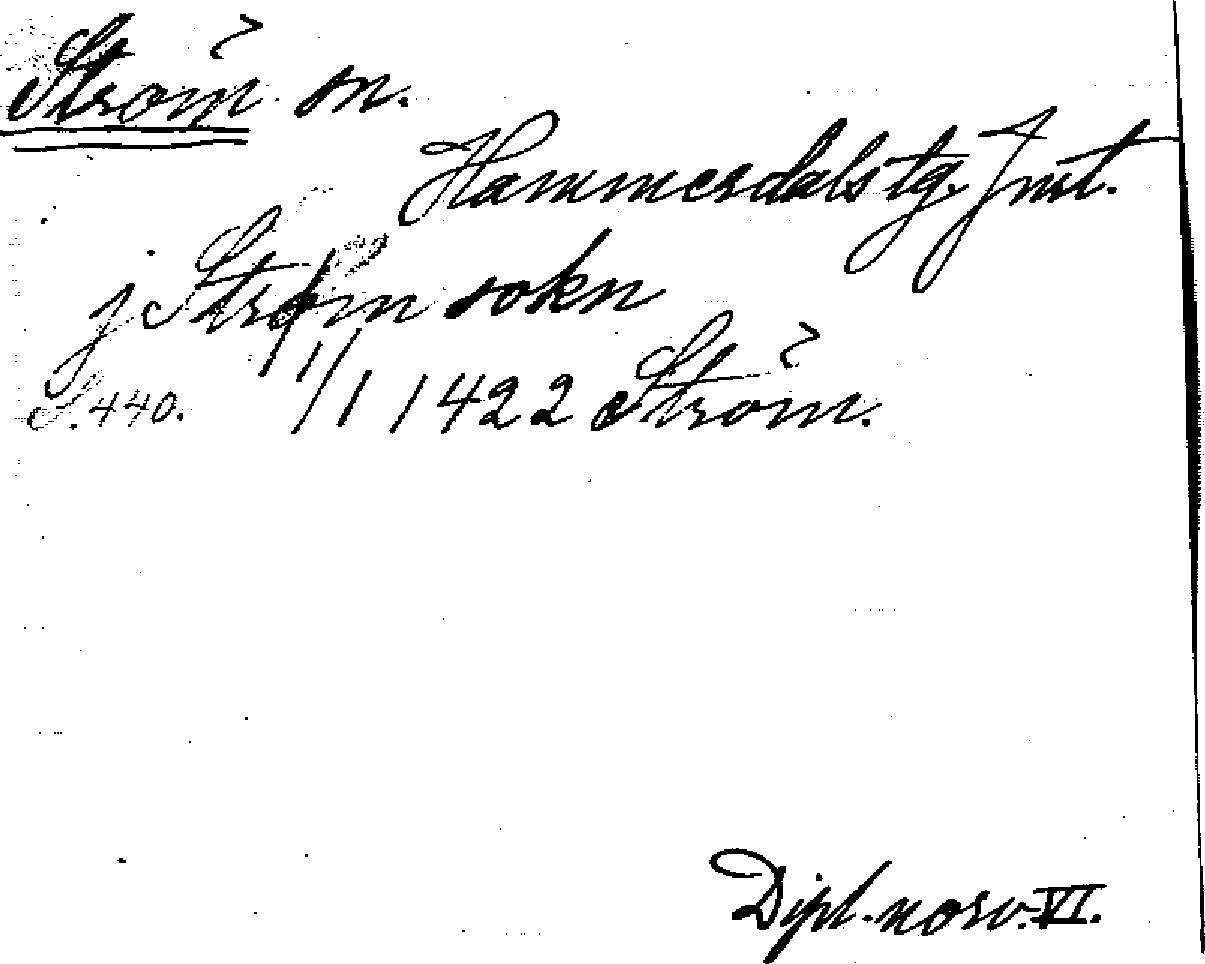 Ström sn.
Hammerdals tg. Jmt.
j Strøm sokn
S. 440. 11/1 1422 Ström.
Dipl. norv. VI.